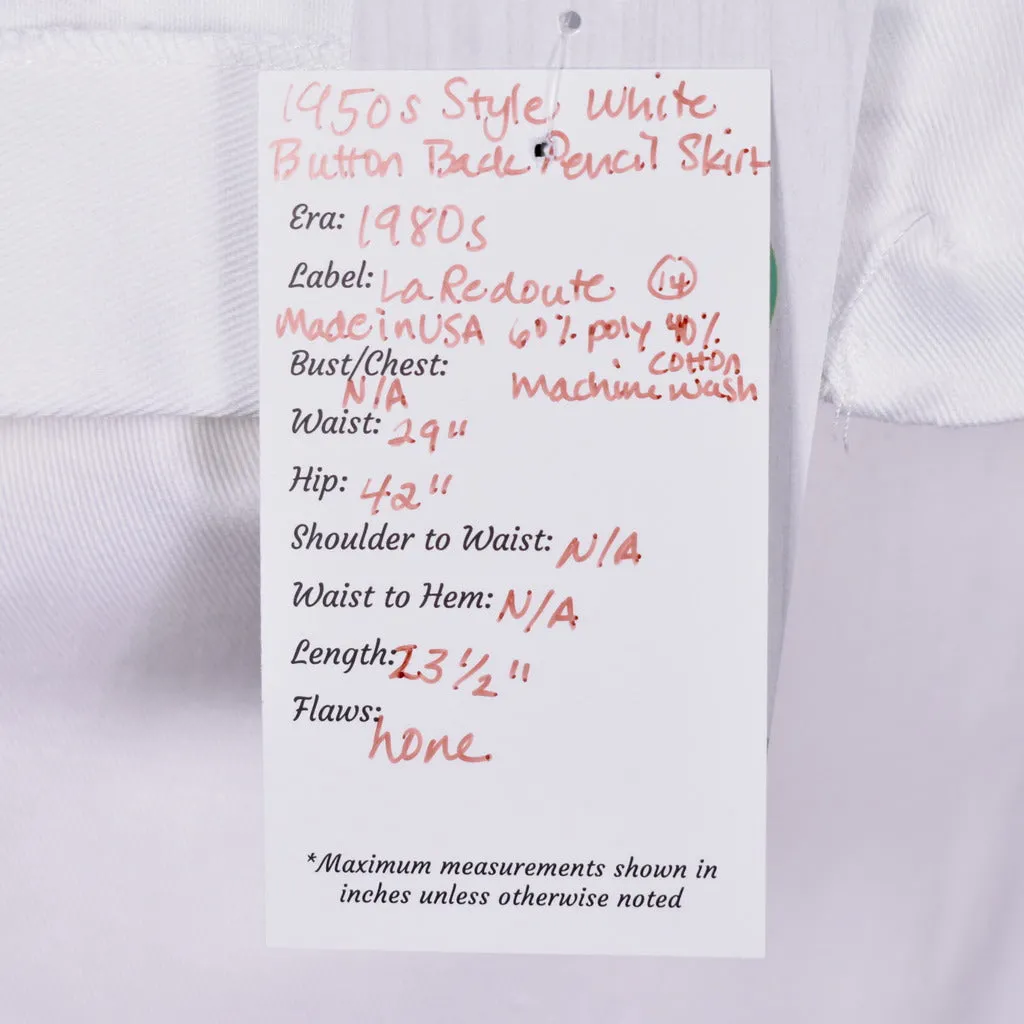 1950s Style White
Button Back Pencil Skirt
Era: 1980s
Label: La Redoute 14
Made in USA 60% poly 40%
cotton
Bust/Chest:
N/A
Machine wash
Waist: 29"
Hip: 42"
Shoulder to Waist: N/A
Waist to Hem: N/A
Length: 23 1/2"
Flaws:
none
*Maximum measurements shown in
inches unless otherwise noted